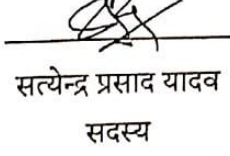 सत्येन्द्र प्रसाद यादव
सदस्य